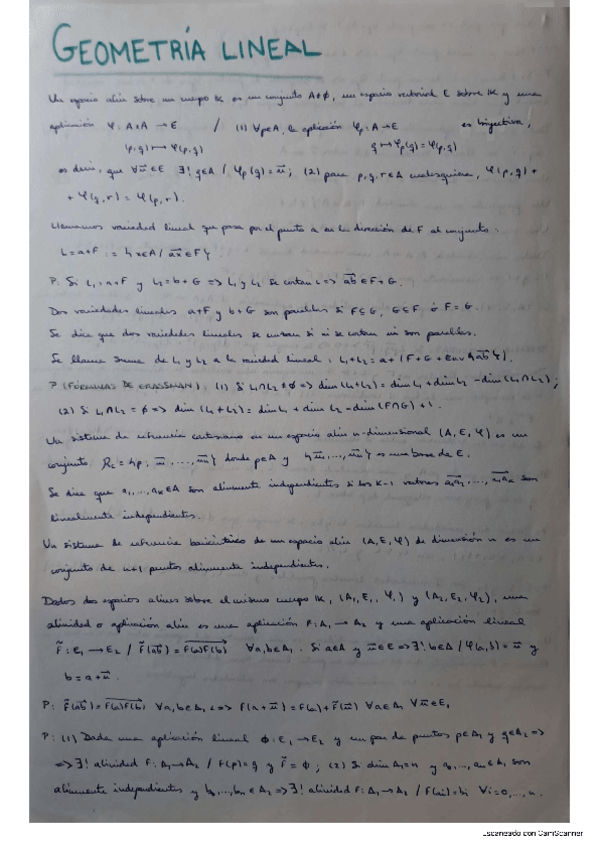 GEOMETRÍA LINEAL
Un espacio afín sobre un cuerpo K es un conjunto A≠∅, un espacio vectorial E sobre K y una
aplicación φ: A×A → E / (1) ∀p∈A, la aplicación φp: A→E es biyectiva,
(p,q) ↦ φ(p,q) q ↦ φp(q) = φ(p,q)
es decir, que ∀u∈E ∃! q∈A / φp(q) = u; (2) para p,q,r∈A cualesquiera, φ(p,q) +
+ φ(q,r) = φ(p,r).
Llamamos variedad lineal que pasa por el punto a en la dirección de F al conjunto:
L = a+F := {x∈A / ax∈F}.
P: Si L₁ = a+F y L₂ = b+G => L₁ y L₂ se cortan <=> ab ∈ F+G.
Dos variedades lineales a+F y b+G son paralelas si F⊆G, G⊆F ó F=G.
Se dice que dos variedades lineales se cruzan si ni se cortan ni son paralelas.
Se llama suma de L₁ y L₂ a la variedad lineal: L₁+L₂ = a+(F+G+Env{ab}).
P (FÓRMULAS DE GRASSMAN): (1) Si L₁∩L₂ ≠ ∅ => dim(L₁+L₂) = dim L₁ + dim L₂ - dim(L₁∩L₂);
(2) Si L₁∩L₂ = ∅ => dim(L₁+L₂) = dim L₁ + dim L₂ - dim(F∩G) + 1.
Un sistema de referencia cartesiano en un espacio afín n-dimensional (A, E, φ) es un
conjunto Rc = {p; u₁, ..., uₙ} donde p∈A y {u₁, ..., uₙ} es una base de E.
Se dice que a₁, ..., aₖ∈A son afínmente independientes si los k-1 vectores a₁a₂, ..., a₁aₖ son
linealmente independientes.
Un sistema de referencia baricéntrico de un espacio afín (A, E, φ) de dimensión n es un
conjunto de n+1 puntos afínmente independientes.
Dados dos espacios afines sobre el mismo cuerpo K, (A₁, E₁, φ₁) y (A₂, E₂, φ₂), una
afinidad o aplicación afín es una aplicación f: A₁ → A₂ y una aplicación lineal
f: E₁ → E₂ / f(ab) = f(a)f(b) ∀a,b∈A₁. Si a∈A y u∈E => ∃! b∈A / φ(a,b) = u y
b = a+u.
P: f(ab) = f(a)f(b) ∀a,b∈A₁ <=> f(a+u) = f(a) + f(u) ∀a∈A₁ ∀u∈E₁
P: (1) Dada una aplicación lineal ϕ: E₁ → E₂ y un par de puntos p∈A₁ y q∈A₂ =>
=> ∃! afinidad f: A₁→A₂ / f(p) = q y f = ϕ; (2) Si dim A₁ = n y a₀, ..., aₙ∈A₁ son
afínmente independientes y b₀, ..., bₙ∈A₂ => ∃! afinidad f: A₁→A₂ / f(ai) = bi ∀i=0,...,n.
Escaneado con CamScanner